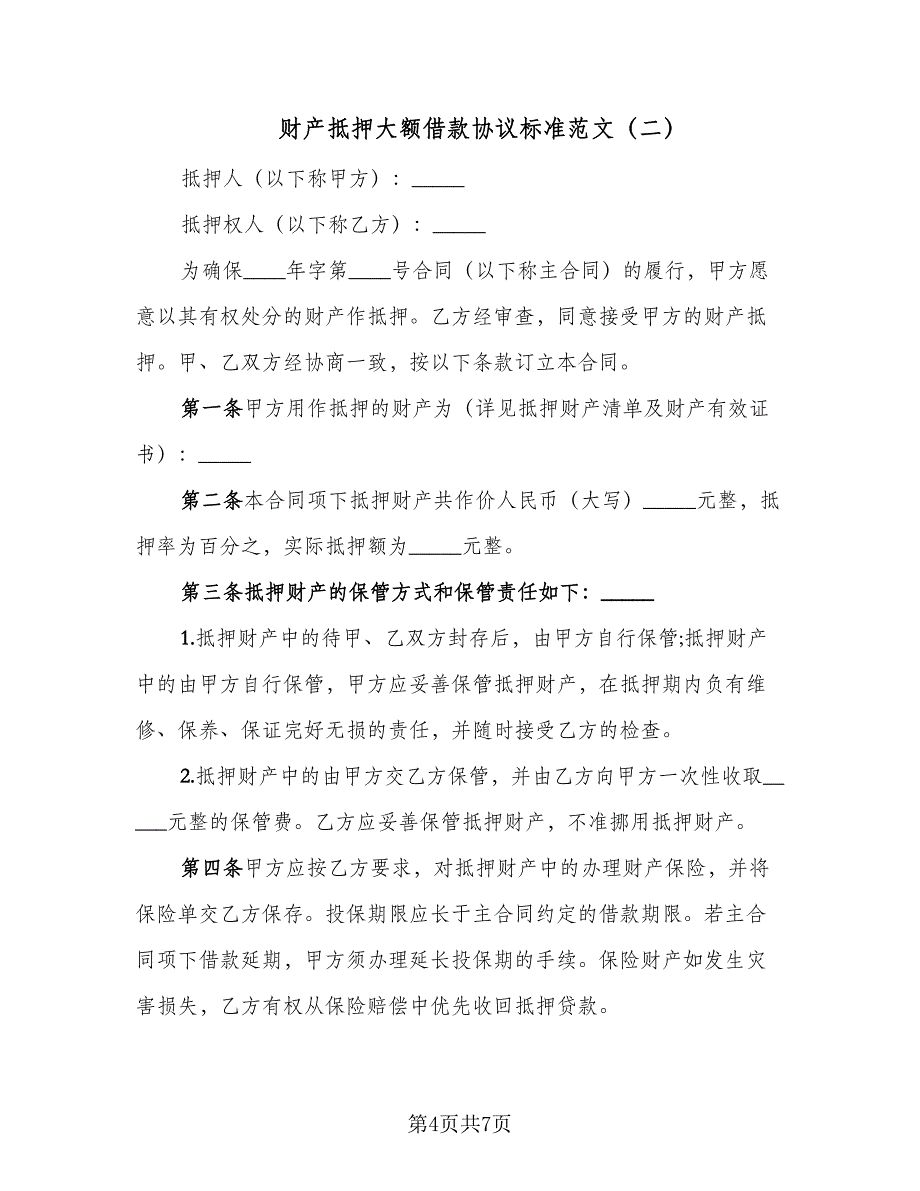 财产抵押大额借款协议标准范文（二）
抵押人（以下称甲方）：_____
抵押权人（以下称乙方）：_____
为确保____年字第____号合同（以下称主合同）的履行，甲方愿
意以其有权处分的财产作抵押。乙方经审查，同意接受甲方的财产抵
押。甲、乙双方经协商一致，按以下条款订立本合同。
第一条甲方用作抵押的财产为（详见抵押财产清单及财产有效证
书）：_____
第二条本合同项下抵押财产共作价人民币（大写）_____元整，抵
押率为百分之，实际抵押额为_____元整。
第三条抵押财产的保管方式和保管责任如下：_____
1.抵押财产中的待甲、乙双方封存后，由甲方自行保管;抵押财产
中的由甲方自行保管，甲方应妥善保管抵押财产，在抵押期内负有维
修、保养、保证完好无损的责任，并随时接受乙方的检查。
2.抵押财产中的由甲方交乙方保管，并由乙方向甲方一次性收取__
___元整的保管费。乙方应妥善保管抵押财产，不准挪用抵押财产。
第四条甲方应按乙方要求，对抵押财产中的办理财产保险，并将
保险单交乙方保存。投保期限应长于主合同约定的借款期限。若主合
同项下借款延期，甲方须办理延长投保期的手续。保险财产如发生灾
害损失，乙方有权从保险赔偿中优先收回抵押贷款。
第4页共7页